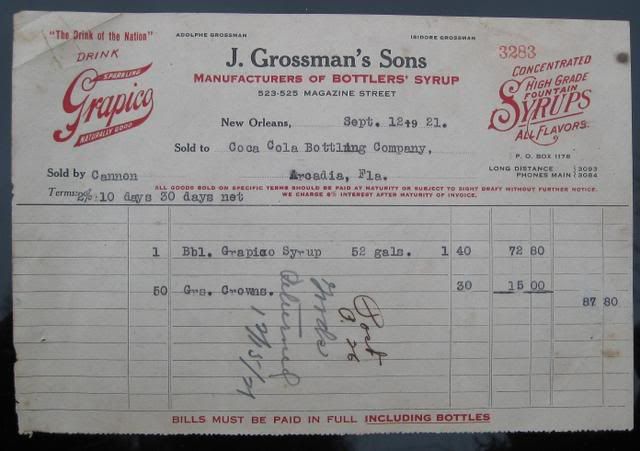 "The Drink of the Nation"
ADOLPHE GROSSMAN
ISIDORE GROSSMAN
DRINK
SPARKLING
Grapico
NATURALLY GOOD
J. Grossman's Sons
MANUFACTURERS OF BOTTLERS' SYRUP
523-525 MAGAZINE STREET
3283
CONCENTRATED
HIGH GRADE
FOUNTAIN
SYRUPS
ALL FLAVORS.
New Orleans, Sept. 12 19 21.
Sold to Coca Cola Bottling Company,
P. O. BOX 1176
Sold by Cannon Arcadia, Fla.
LONG DISTANCE PHONES MAIN 3093 3084
Terms: 2% 10 days 30 days net
ALL GOODS SOLD ON SPECIFIC TERMS SHOULD BE PAID AT MATURITY OR SUBJECT TO SIGHT DRAFT WITHOUT FURTHER NOTICE.
WE CHARGE 8% INTEREST AFTER MATURITY OF INVOICE.
1 Bbl. Grapico Syrup 52 gals. 1 40 72 80
50 Grs. Crowns. 30 15 00
87 80
Goods
Returned
Post
BILLS MUST BE PAID IN FULL INCLUDING BOTTLES